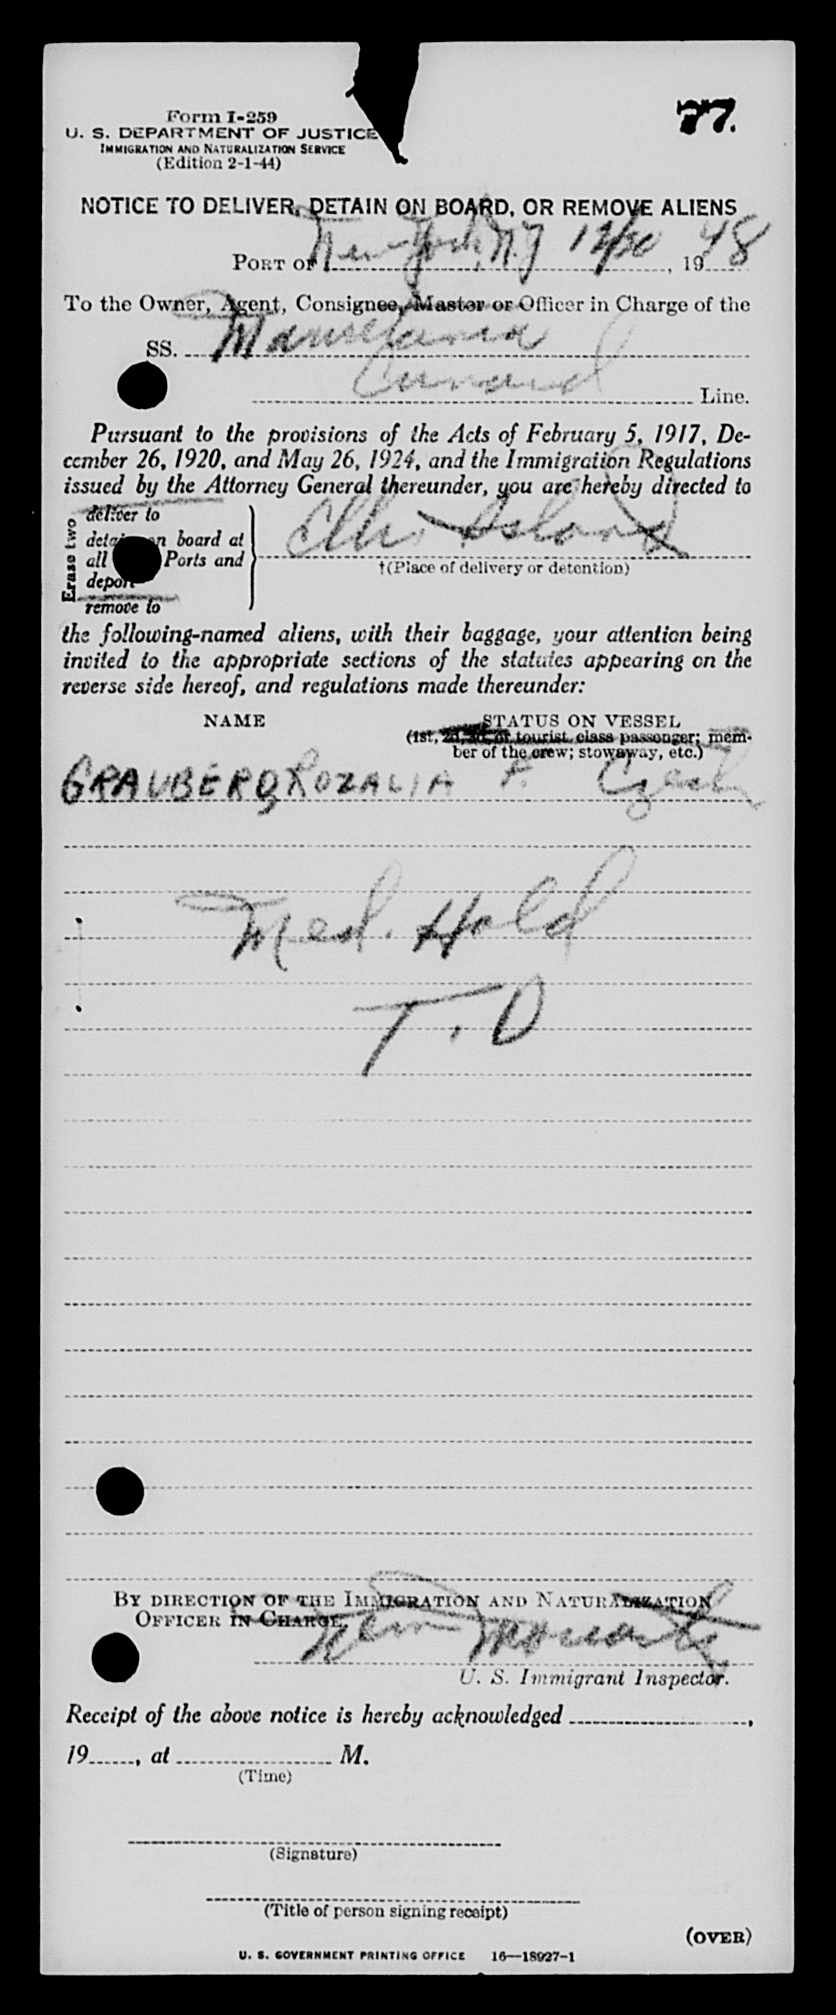 77.
Form I-259
U. S. DEPARTMENT OF JUSTICE
IMMIGRATION AND NATURALIZATION SERVICE
(Edition 2-1-44)
NOTICE TO DELIVER, DETAIN ON BOARD, OR REMOVE ALIENS
PORT OF New York, N.Y 12/30, 1948
To the Owner, Agent, Consignee, Master or Officer in Charge of the
SS. Mauretania
Cunard Line.
Pursuant to the provisions of the Acts of February 5, 1917, De-
cember 26, 1920, and May 26, 1924, and the Immigration Regulations
issued by the Attorney General thereunder, you are hereby directed to
Erase two
deliver to
detain on board at
all Ports and
deport
remove to
Ellis Island
†(Place of delivery or detention)
the following-named aliens, with their baggage, your attention being
invited to the appropriate sections of the statutes appearing on the
reverse side hereof, and regulations made thereunder:
NAME STATUS ON VESSEL
(1st, 2d, 3d, or tourist class passenger; mem-
ber of the crew; stowaway, etc.)
GRAUBERG, ROZALIA F. Czech
Med. Hold
T. D
BY DIRECTION OF THE IMMIGRATION AND NATURALIZATION
OFFICER IN CHARGE.
U. S. Immigrant Inspector.
Receipt of the above notice is hereby acknowledged ,
19 , at M.
(Time)
(Signature)
(Title of person signing receipt)
(OVER)
U. S. GOVERNMENT PRINTING OFFICE 16—18927-1